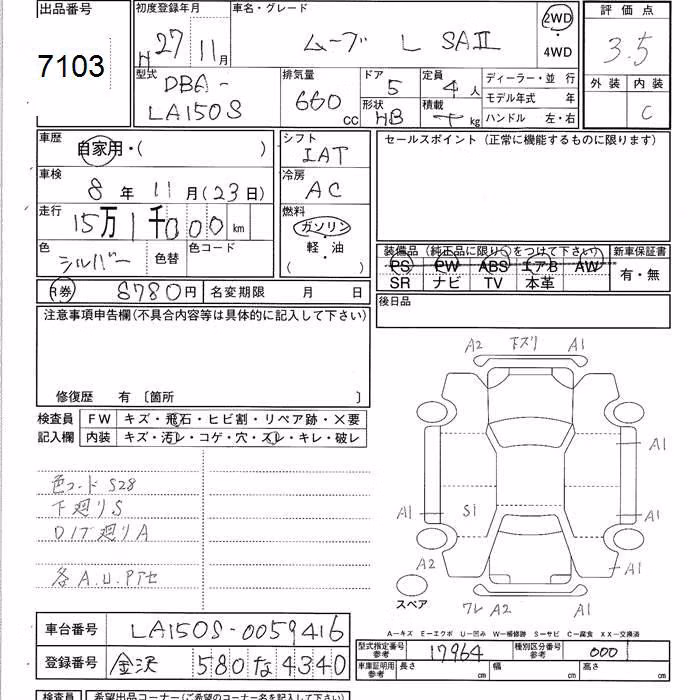 出品番号 初度登録年月 車名・グレード 2WD 評価点
7103 H 27年 11月 ムーブ L SAⅡ 4WD 3.5
型式 排気量 ドア 定員 ディーラー・並 行 外装 内装
DBA- 660cc 5 4人 モデル年式 年 C
LA150S 形状 HB 積載 kg ハンドル 左・右
車歴 自家用・( ) シフト IAT セールスポイント (正常に機能するものに限ります)
車検 8年 11月(23日) 冷房 AC
走行 15万1千000km 燃料
色 シルバー 色替 色コード ガソリン・軽・油 ( )
装備品 (純正品に限り○をつけて下さい) 新車保証書
PS PW ABS エアB AW 有・無
SR ナビ TV 本革
R券 8780円 名変期限 月 日 後日品
注意事項申告欄(不具合内容等は具体的に記入して下さい)
修復歴 有 〔箇所 〕
検査員 FW キズ・飛石・ヒビ割・リペア跡・×要
記入欄 内装 キズ・汚レ・コゲ・穴・スレ・キレ・破レ
A2 下スリ A1
A1
A1 S1 A1
A2 A1
ワレ A2 A1
スペア
色コード S28
下廻りS
ロ15廻りA
各A.U.Pアセ
A-キズ E-エクボ U-凹み W-補修跡 S-サビ C-腐食 XX-交換済
車台番号 LA150S-0059416
登録番号 金沢 580 な 4340
型式指定番号 参考 17964 種別区分番号 参考 000
車庫証明用 参考 長さ cm 幅 cm 高さ cm
検査員 希望出品コーナー(ご希望のコーナー名を記入して下さい)